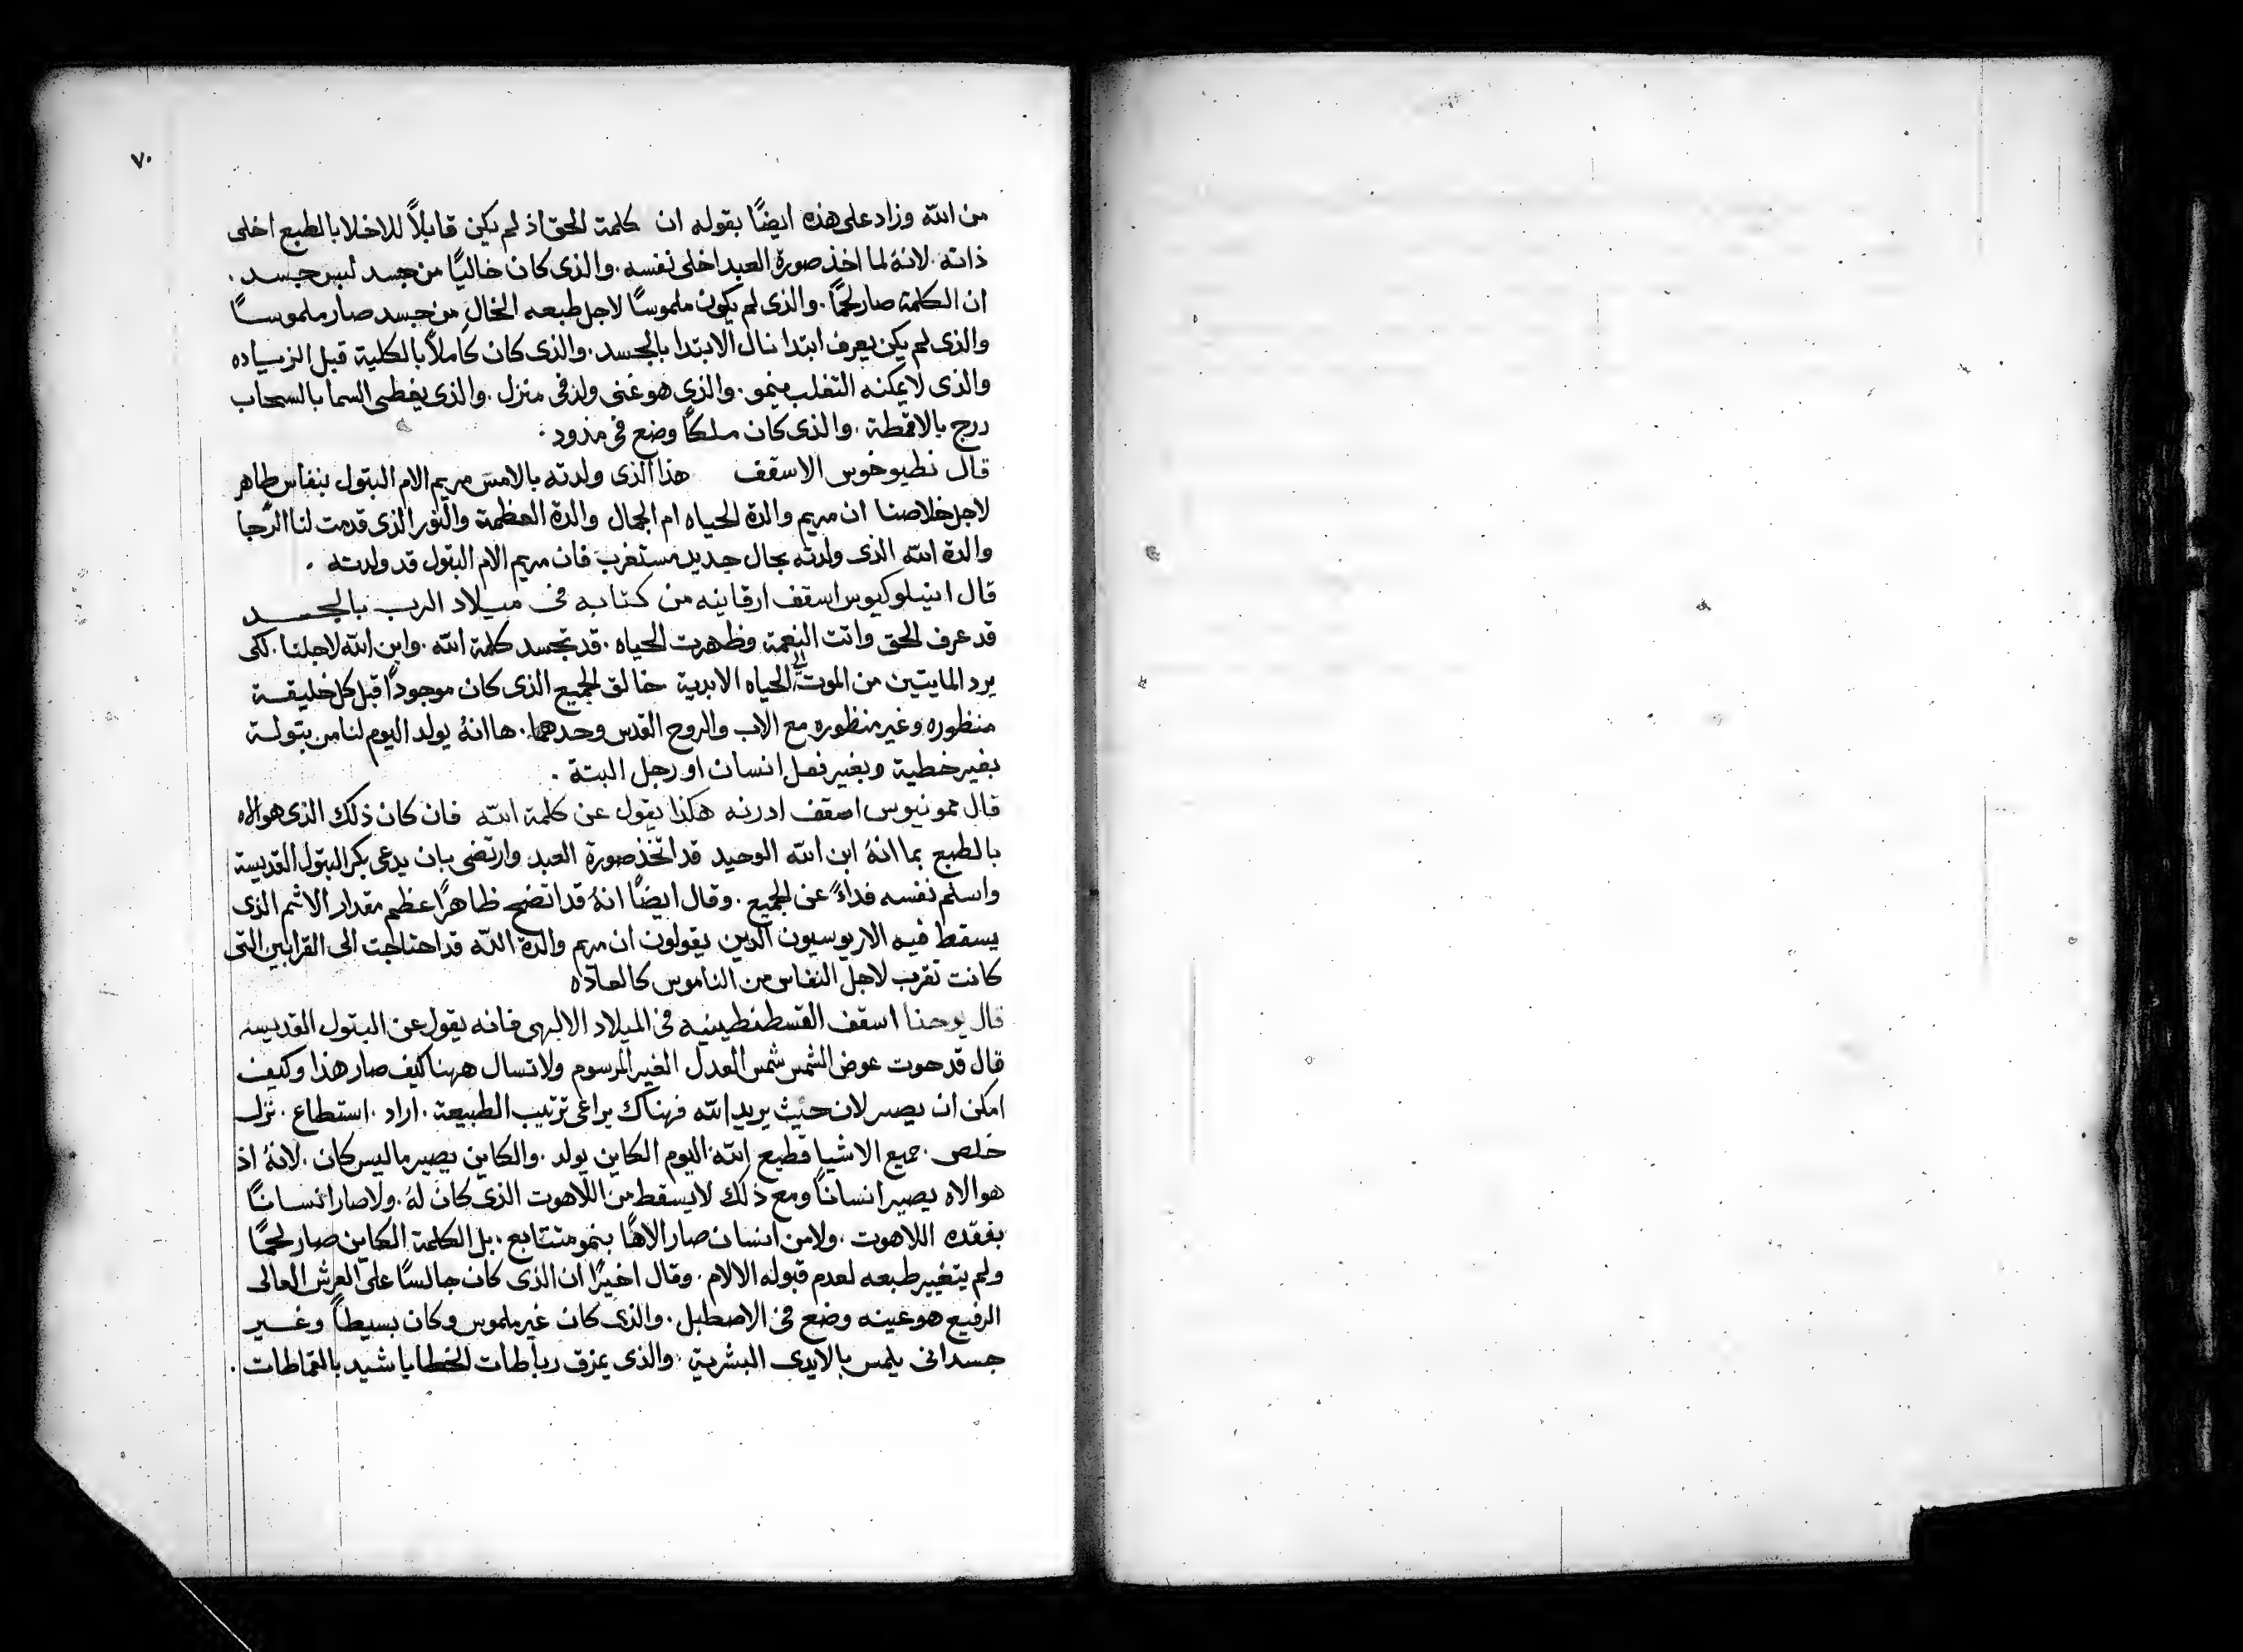 ٧٠
من الله وزاد على هذه ايضًا بقوله ان كلمة الحق اذ لم يكن قابلاً للاخلا بالطبع اخلى
ذاته. لانهُ لما اخذ صورة العبد اخلى نفسه. والذى كان خاليًا من جسد لبس جسد.
ان الكلمة صار لحمًا. والذى لم يكون ملموسًا لاجل طبعه الخال من جسد صار ملموسًا
والذى لم يكن يعرف ابتدا نال الابتدا بالجسد. والذى كان كاملاً بالكلية قبل الزياده
والذى لا يمكنه التغلب ينمو. والذى هو غنى ولد فى منزل. والذى يغطى السما بالسحاب
درج بالاقمطة. والذى كان ملكًا وضع فى مذود :
قال نطيوخوس الاسقف هذا الذى ولدته بالامس مريم الام البتول بنفاس طاهر
لاجل خلاصنا ان مريم والدة الحياه ام الجمال والدة العظمة والنور الذى قدمت لنا الرجا
والدة الله الذى ولدته بحال جديد مستغرب فان مريم الام البتول قد ولدته .
قال انيلوكيوس اسقف ارقانيه من كتابه فى ميلاد الرب بالجسد
قد عرف الحق واتت النعمة وظهرت الحياه. قد تجسد كلمة الله. وابن الله لاجلنا. لكى
يرد المايتين من الموت الى الحياه الابدية خالق الجميع الذى كان موجودًا قبل كل خليقة
منظوره وغير منظوره مع الاب والروح القدس وحدهما. ها انهُ يولد اليوم لنا من بتولة
بغير خطية وبغير فعل انسان او رجل البتة .
قال ممونيوس اسقف ادرنه هكذا يقول عن كلمة الله فان كان ذلك الذى هو الاه
بالطبع بما انهُ ابن الله الوحيد قد اتخذ صورة العبد وارتضى بان يدعى بكر البتول القديسة
واسلم نفسه فداءً عن الجميع. وقال ايضًا انهُ قد اتضح ظاهرًا عظم مقدار الاثم الذى
يسقط فيه الاريوسيون الذين يقولون ان مريم والدة الله قد احتاجت الى القرابين التى
كانت تقرب لاجل النفاس من الناموس كالعاده
قال يوحنا اسقف القسطنطينيه فى الميلاد الالهى فانه يقول عن البتول القديسه
قال قد حوت عوض الشمس شمس العدل الغير المرسوم ولا تسال ههنا كيف صار هذا وكيف
امكن ان يصير لان حيث يريد الله فهناك يراعى ترتيب الطبيعة. اراد. استطاع. نزل
خلص. جميع الاشيا قطيع الله. اليوم الكاين يولد. والكاين يصير ما ليس كان. لانهُ اذ
هو الاه يصير انسانًا ومع ذلك لا يسقط من اللاهوت الذى كان لهُ. ولا صار انسانًا
بفقده اللاهوت. ولا من انسان صار الاهًا بنمو متتابع. بل الكلمة الكاين صار لحمًا
ولم يتغيير طبعه لعدم قبوله الالام. وقال اخيرًا ان الذى كان جالسًا على العرش العالى
الرفيع هو عينه وضع فى الاصطبل. والذى كان غير ملموس وكان بسيطاً وغير
جسدانى يلمس بالايدى البشرية. والذى يمزق رباطات الخطايا شيد بالقماطات.